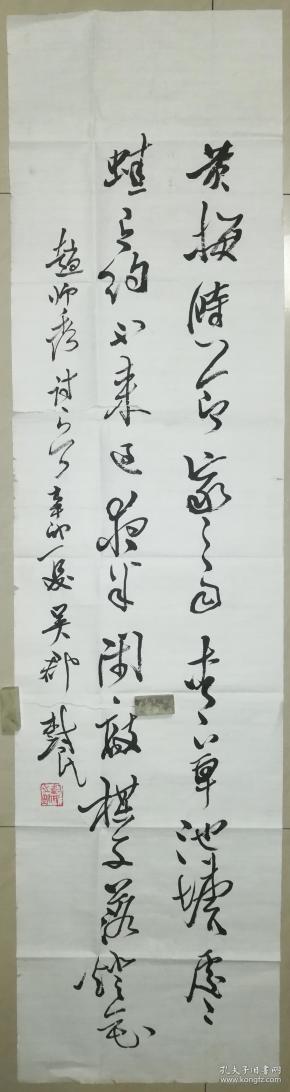 黄梅时节家家雨青草池塘处处
蛙有约不来过夜半闲敲棋子落灯花
赵师秀诗一首辛卯夏吴郡
孔夫子旧书网